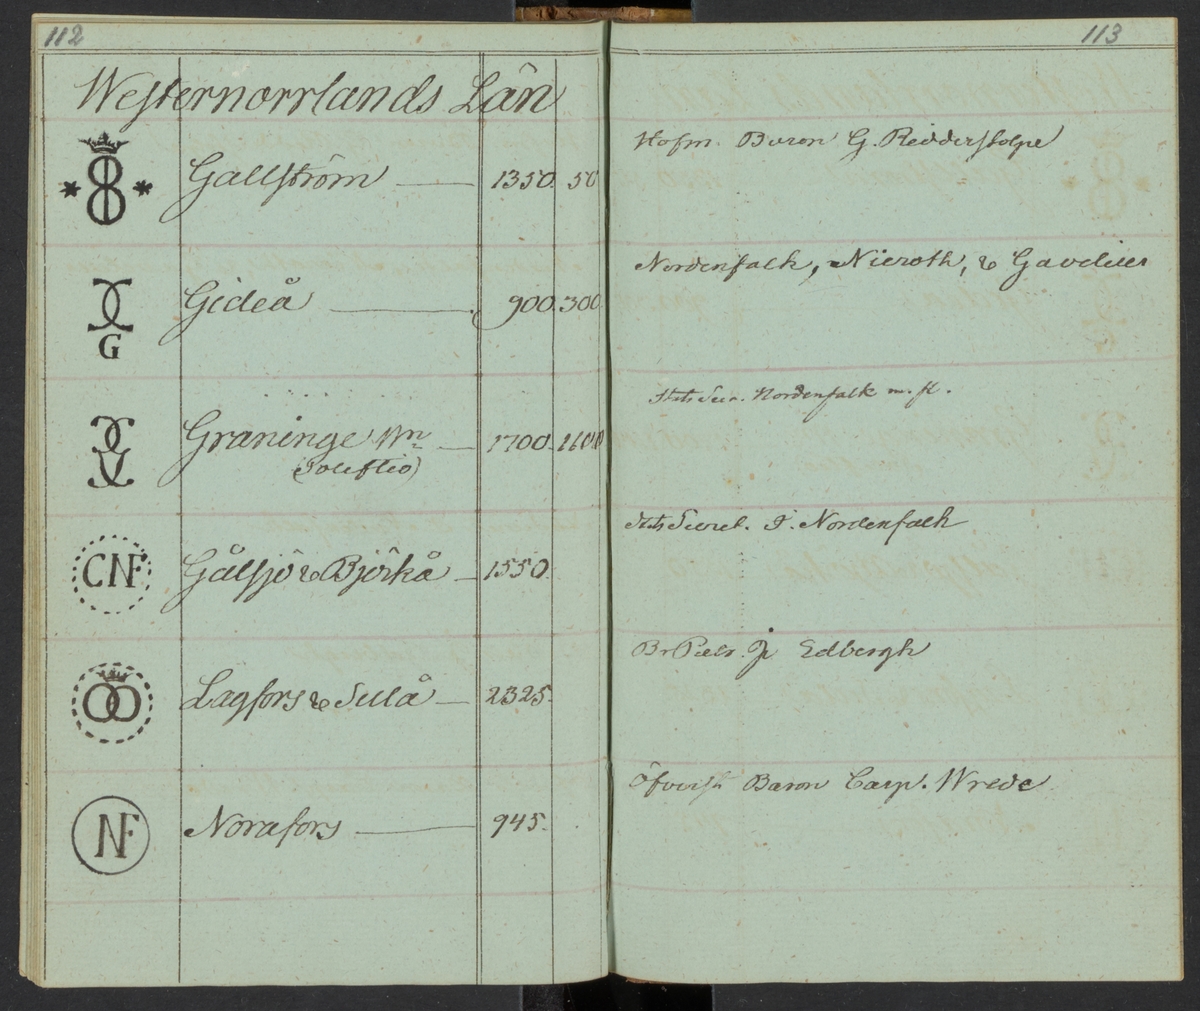 112
Westernorrlands Län
Gallström 1350. 50
Gideå 900. 300
G
Graninge 1700. 1600
(Soleftio)
CNF Gålsjö & Björkå 1550.
Lagfors & Sulå 2325.
NF Norafors 945.
113
Hofm. Baron G. Ridderstolpe
Nordenfalk, Nieroth, & Gavelius
Stats Secr. Nordenfalk m. fl.
Stats Secret. J. Nordenfalk
Br Patr. Edbergh
Baron Casp. Wrede